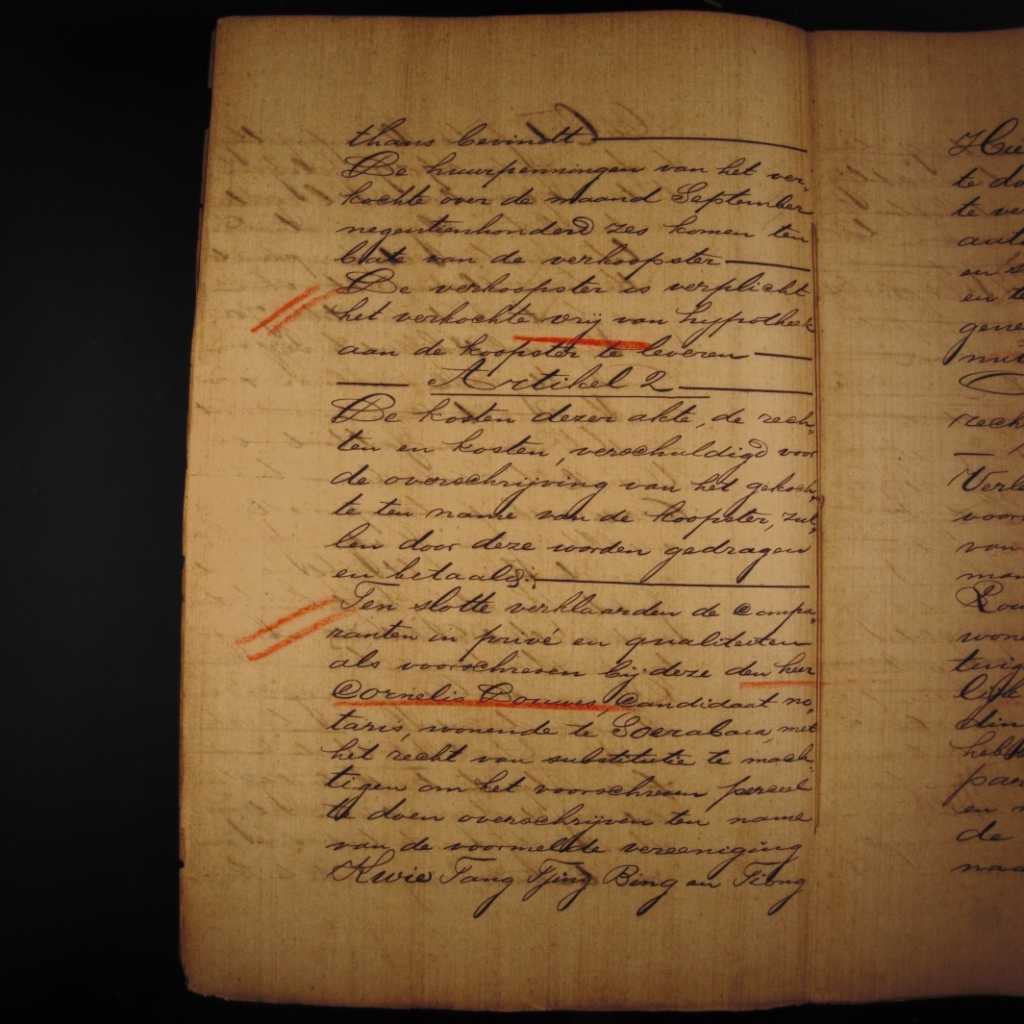 thans bevindt
De huurpenningen van het ver-
kochte over de maand September
negentienhonderd zes komen ten
bate van de verkoopster
De verkoopster is verplicht
het verkochte vrij van hypotheek
aan de koopster te leveren
Artikel 2
De kosten dezer akte, de rech-
ten en kosten, verschuldigd voor
de overschrijving van het gekoch-
te ten name van de koopster, zul-
len door deze worden gedragen
en betaald:
Ten slotte verklaarden de Compa-
ranten in privé en qualiteiten
als voorschreven bij deze den heer
Cornelis Bouwes, Candidaat no-
taris, wonende te Soerabaia, met
het recht van substitutie te mach-
tigen om het voorschreven perceel
te doen overschrijven ten name
van de voormelde vereeniging
Kwie Tang Tjing Bing en Tiong
te
te
en
en te
voor
van
de